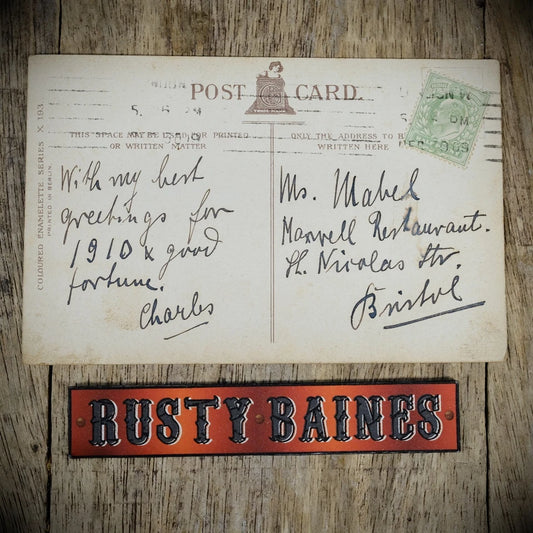 POST CARD.
THIS SPACE MAY BE USED FOR PRINTED
OR WRITTEN MATTER
ONLY THE ADDRESS TO BE
WRITTEN HERE
COLOURED ENAMELETTE SERIES X 193.
PRINTED IN BERLIN.
With my best
greetings for
1910 & good
fortune.
Charles
Ms. Mabel
Maxwell Restaurant.
St. Nicolas Str.
Bristol
RUSTY BAINES